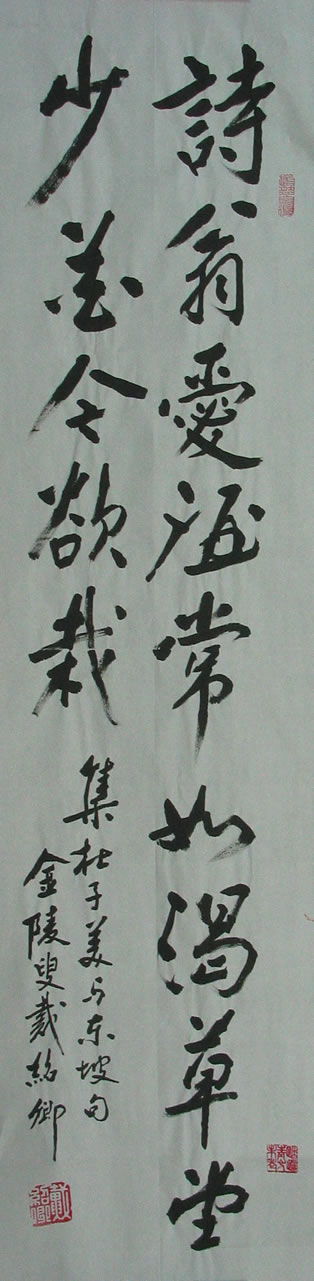 詩翁愛酒常如渴草堂
少花今欲栽
集杜子美与东坡句
金陵叟戴紹卿